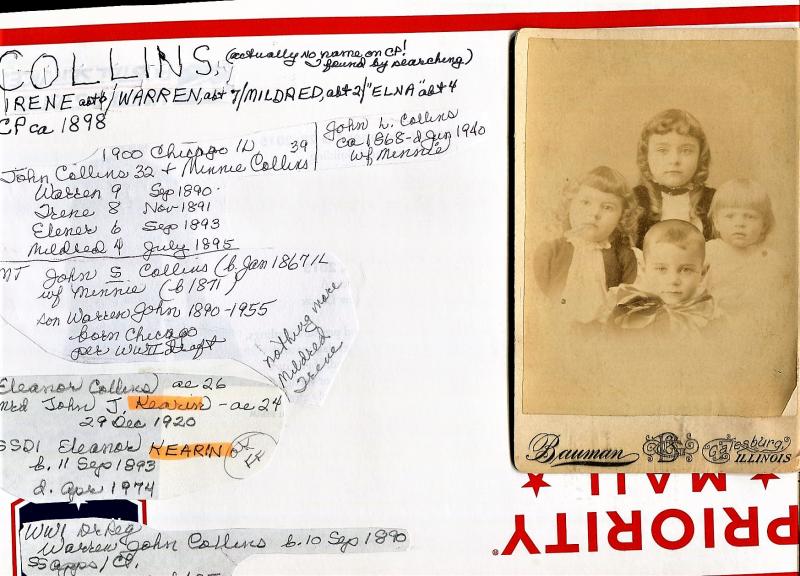 COLLINS, (actually no name on CP!
I found by searching)
IRENE abt 6/WARREN, abt 7/MILDRED, abt 2/"ELNA" abt 4
CP ca 1898
1900 Chicago IL 39
John Collins 32 + Minnie Collins
Warren 9 Sep 1890
Irene 8 Nov 1891
Elener 6 Sep 1893
Mildred 4 July 1895
John L. Collins
ca 1868-d Jun 1940
wf Minnie
MT John S. Collins (b. Jan 1867 IL
wf Minnie (b 1871)
son Warren John 1890-1955
born Chicago
per WWII Draft
nothing more
Mildred
Irene
Eleanor Collins) ae 26
mrd John J. Kearin - ae 24
29 Dec 1920
SSDI Eleanor KEARIN
b. 11 Sep 1893
d. Apr 1974
WWI Dr Reg
Warren John Collins b. 10 Sep 1890
SS apps/
Bauman Galesburg, ILLINOIS
PRIORITY
★ MAIL ★